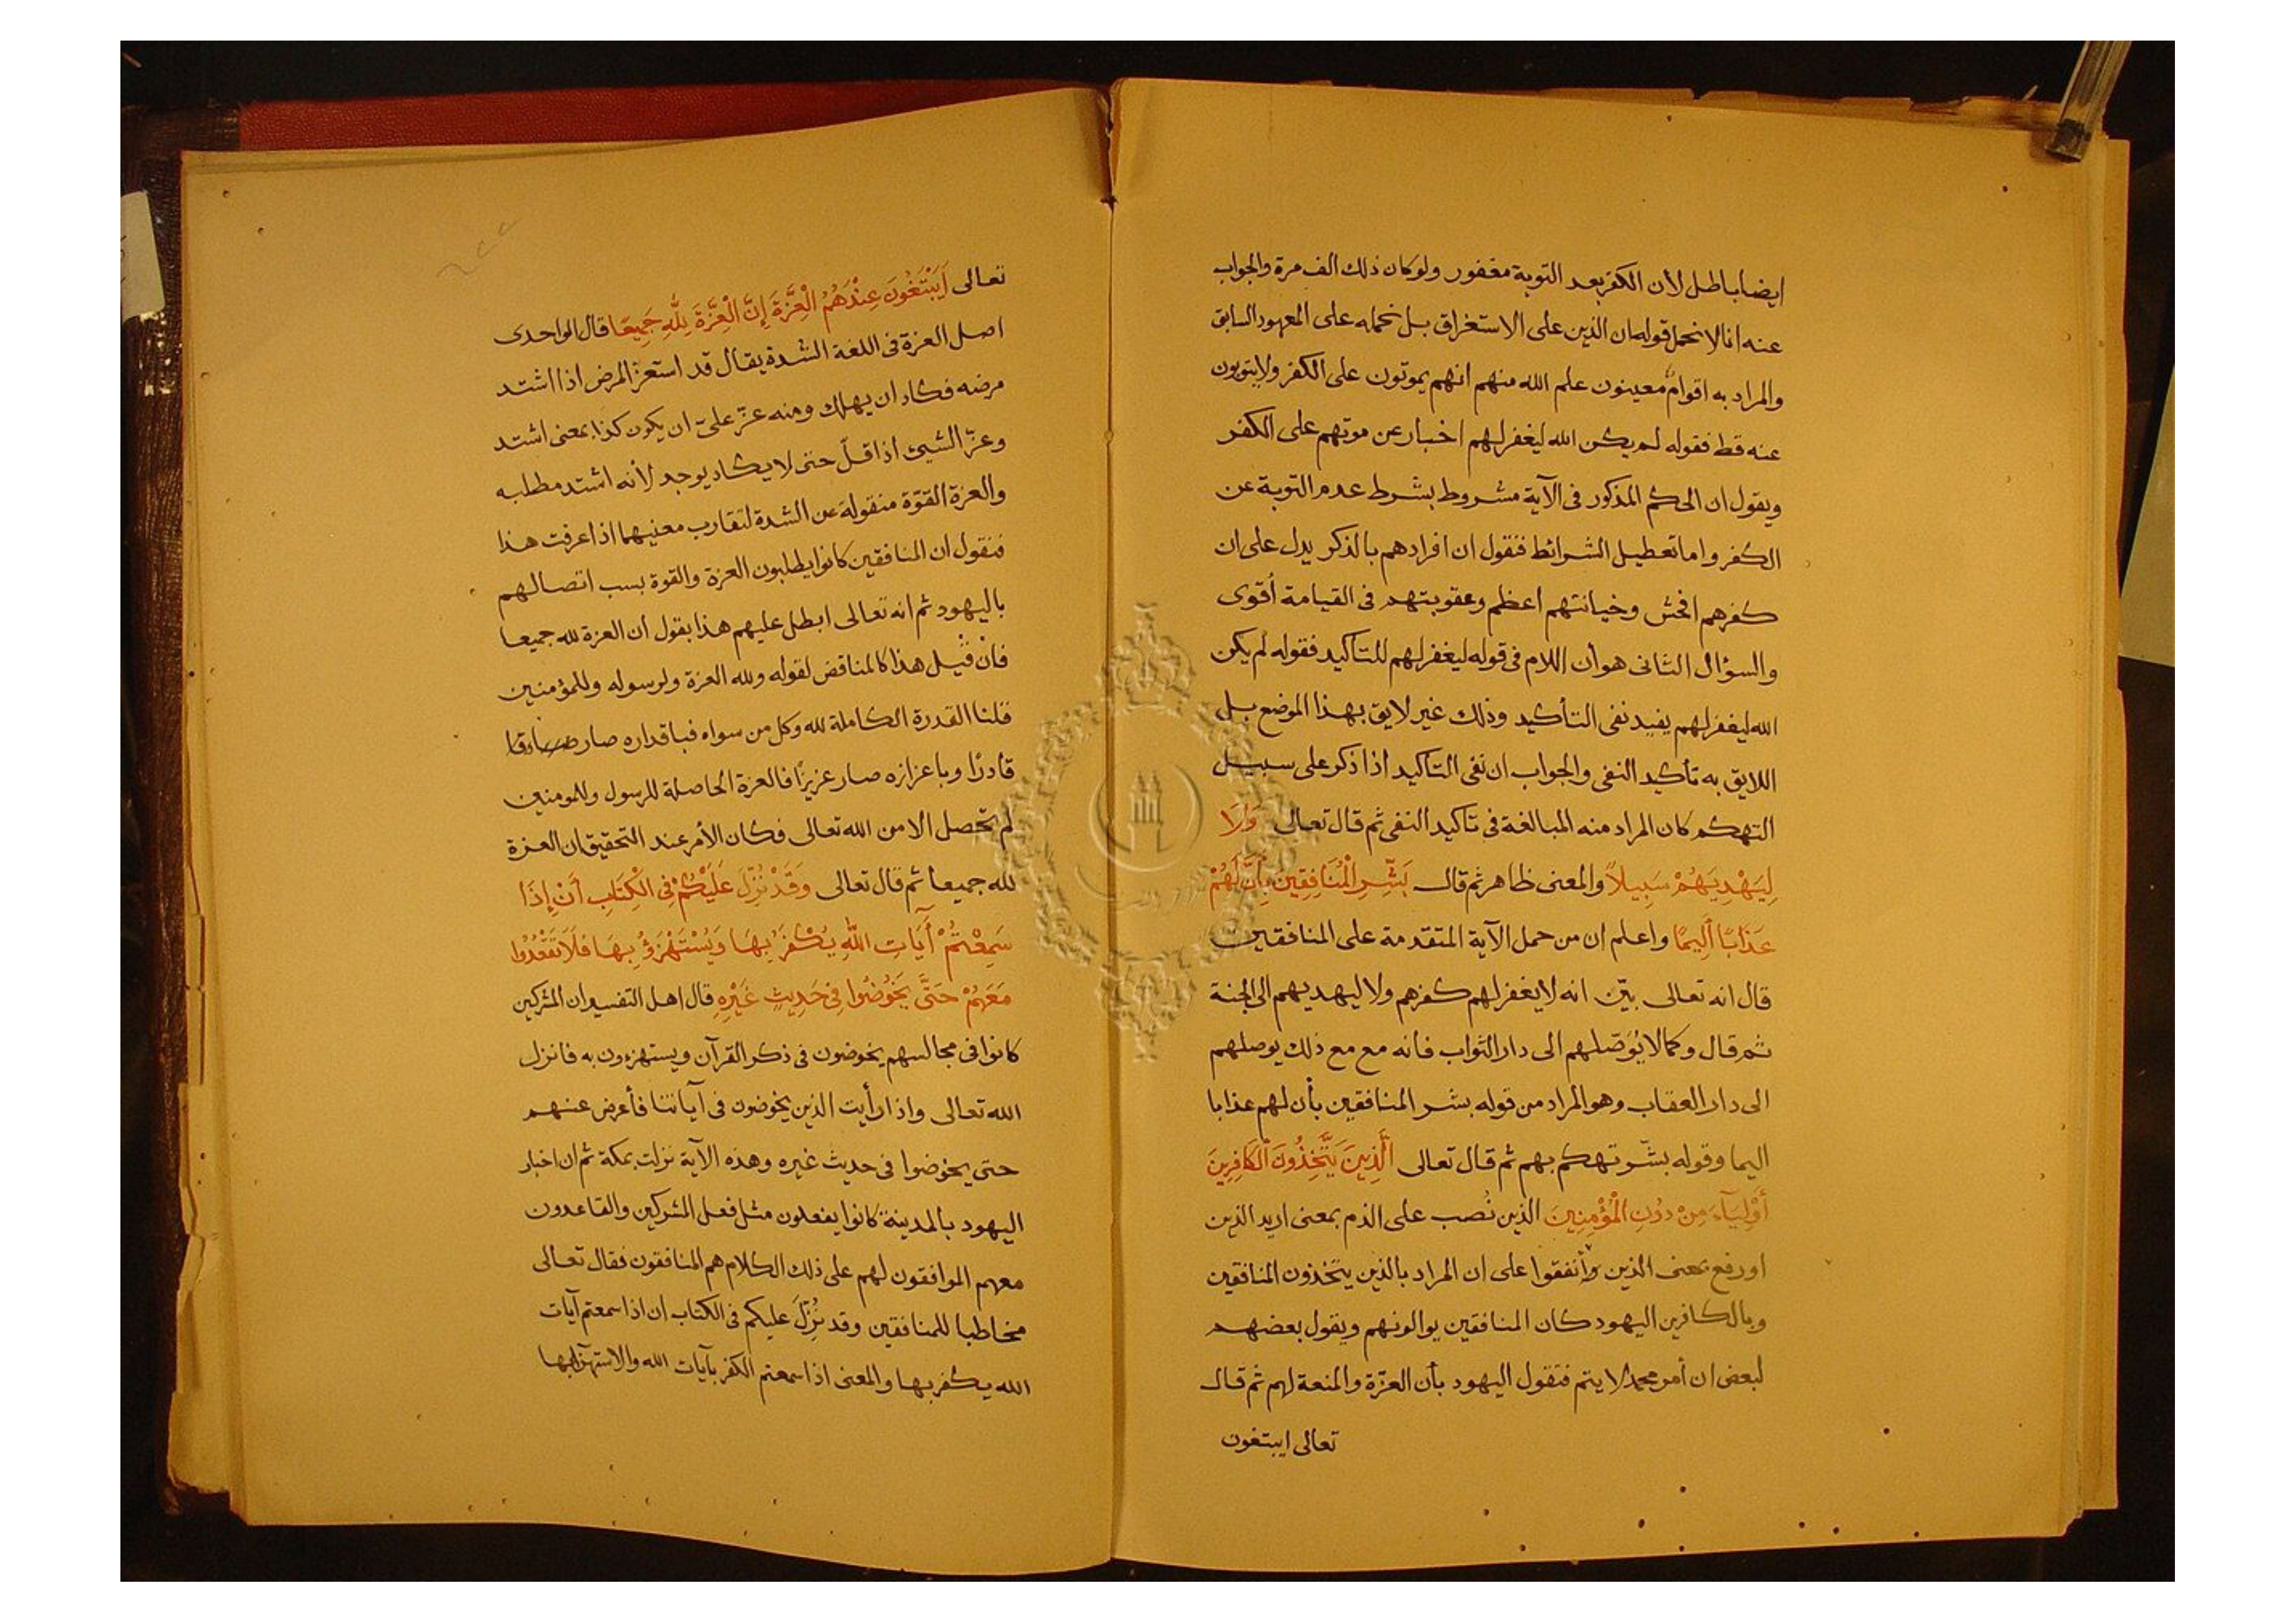 ايضا باطل لأن الكفر بعد التوبة مغفور ولو كان ذلك الف مرة والجواب
عنه انا لا نحمل قوله ان الذين على الاستغراق بل نحمله على المعهود السابق
والمراد به اقوام معينون علم الله منهم انهم يموتون على الكفر ولا يتوبون
عنه قط فقوله لم يكن الله ليغفر لهم اخبار عن موتهم على الكفر
ويقول ان الحكم المذكور فى الآية مشروط بشرط عدم التوبة عن
الكفر واما تعطيل الشرائط فنقول ان افرادهم بالذكر يدل على ان
كفرهم افحش وخيانتهم اعظم وعقوبتهم فى القيامة أقوى
والسؤال الثانى هو أن اللام فى قوله ليغفر لهم للتاكيد فقوله لم يكن
الله ليغفر لهم يفيد نفى التأكيد وذلك غير لايق بهذا الموضع بل
اللايق به تأكيد النفى والجواب ان نفى التاكيد اذا ذكر على سبيل
التهكم كان المراد منه المبالغة فى تاكيد النفى ثم قال تعالى وَلَا
لِيَهْدِيَهُمْ سَبِيلاً والمعنى ظاهر ثم قال بَشِّرِ الْمُنَافِقِينَ بِأَنَّ لَهُمْ
عَذَابًا أَلِيمًا واعلم ان من حمل الآية المتقدمة على المنافقين
قال انه تعالى بيّن انه لا يغفر لهم كفرهم ولا ليهديهم الى الجنة
ثم قال وكما لا يُوَصّلهم الى دار الثواب فأنه مع مع ذلك يوصلهم
الى دار العقاب وهو المراد من قوله بشر المنافقين بأن لهم عذابا
اليما وقوله بشّر تهكم بهم ثم قال تعالى الَّذِينَ يَتَّخِذُونَ الْكَافِرِينَ
أَوْلِيَآءَ مِنْ دُونِ الْمُؤْمِنِينَ الذين نُصب على الذم بمعنى اريد الذين
او رفع بمعنى الذين وأتفقوا على ان المراد بالذين يتخذون المنافقين
وبالكافرين اليهود كان المنافقين يوالونهم ويقول بعضهم
لبعض ان أمر محمد لا يتم فتقول اليهود بأن العزّة والمنعة لهم ثم قال
تعالى ايبتغون
تعالى أَيَبْتَغُونَ عِنْدَهُمُ الْعِزَّةَ إِنَّ الْعِزَّةَ لِلّٰهِ جَمِيعًا قال الواحدى
اصل العزة فى اللغة الشدة يقال قد استعزّ المرض اذا اشتد
مرضه فكاد ان يهلك ومنه عزّ علىّ ان يكون كذا بمعنى اشتد
وعزّ الشيئ اذا قلّ حتى لا يكاد يوجد لأنه اشتد مطلبه
والعزة القوّة منقولة عن الشدة لتقارب معنيهما اذا عرفت هذا
فنقول ان المنافقين كانوا يطلبون العزة والقوة بسب اتصالهم
باليهود ثم انه تعالى ابطل عليهم هذا بقول أن العزة لله جميعا
فأن قيل هذا كالمناقض لقوله ولله العزة ولرسوله وللمؤمنين
قلنا القدرة الكاملة لله وكل من سواه فباقداره صار صادقا
قادرًا وباعزازه صار عزيزًا فالعزة الحاصلة للرسول وللمومنين
لم تحصل الا من الله تعالى فكان الأمر عند التحقيق ان العزة
لله جميعا ثم قال تعالى وَقَدْ نُزِّلَ عَلَيْكُمْ فِى الْكِتَابِ أَنْ إِذَا
سَمِعْتُمْ آيَاتِ اللهِ يُكْفَرُ بِهَا وَيُسْتَهْزَؤُ بِهَا فَلَا تَقْعُدُوا
مَعَهُمْ حَتَّى يَخُوضُوا فِى حَدِيثٍ غَيْرِهِ قال اهل التفسير ان المشركين
كانوا فى مجالسهم يخوضون فى ذكر القرآن ويستهزءون به فانزل
الله تعالى واذا رأيت الذين يخوضون فى آياتنا فأعرض عنهم
حتى يخوضوا فى حديث غيره وهذه الآية نزلت بمكة ثم ان احبار
اليهود بالمدينة كانوا يفعلون مثل فعل المشركين والقاعدون
معهم الموافقون لهم على ذلك الكلام هم المنافقون فقال تعالى
مخاطبا للمنافقين وقد نُزّلَ عليكم فى الكتاب ان اذا سمعتم آيات
الله يكفر بها والمعنى اذا سمعتم الكفر بآيات الله والاستهزا بها